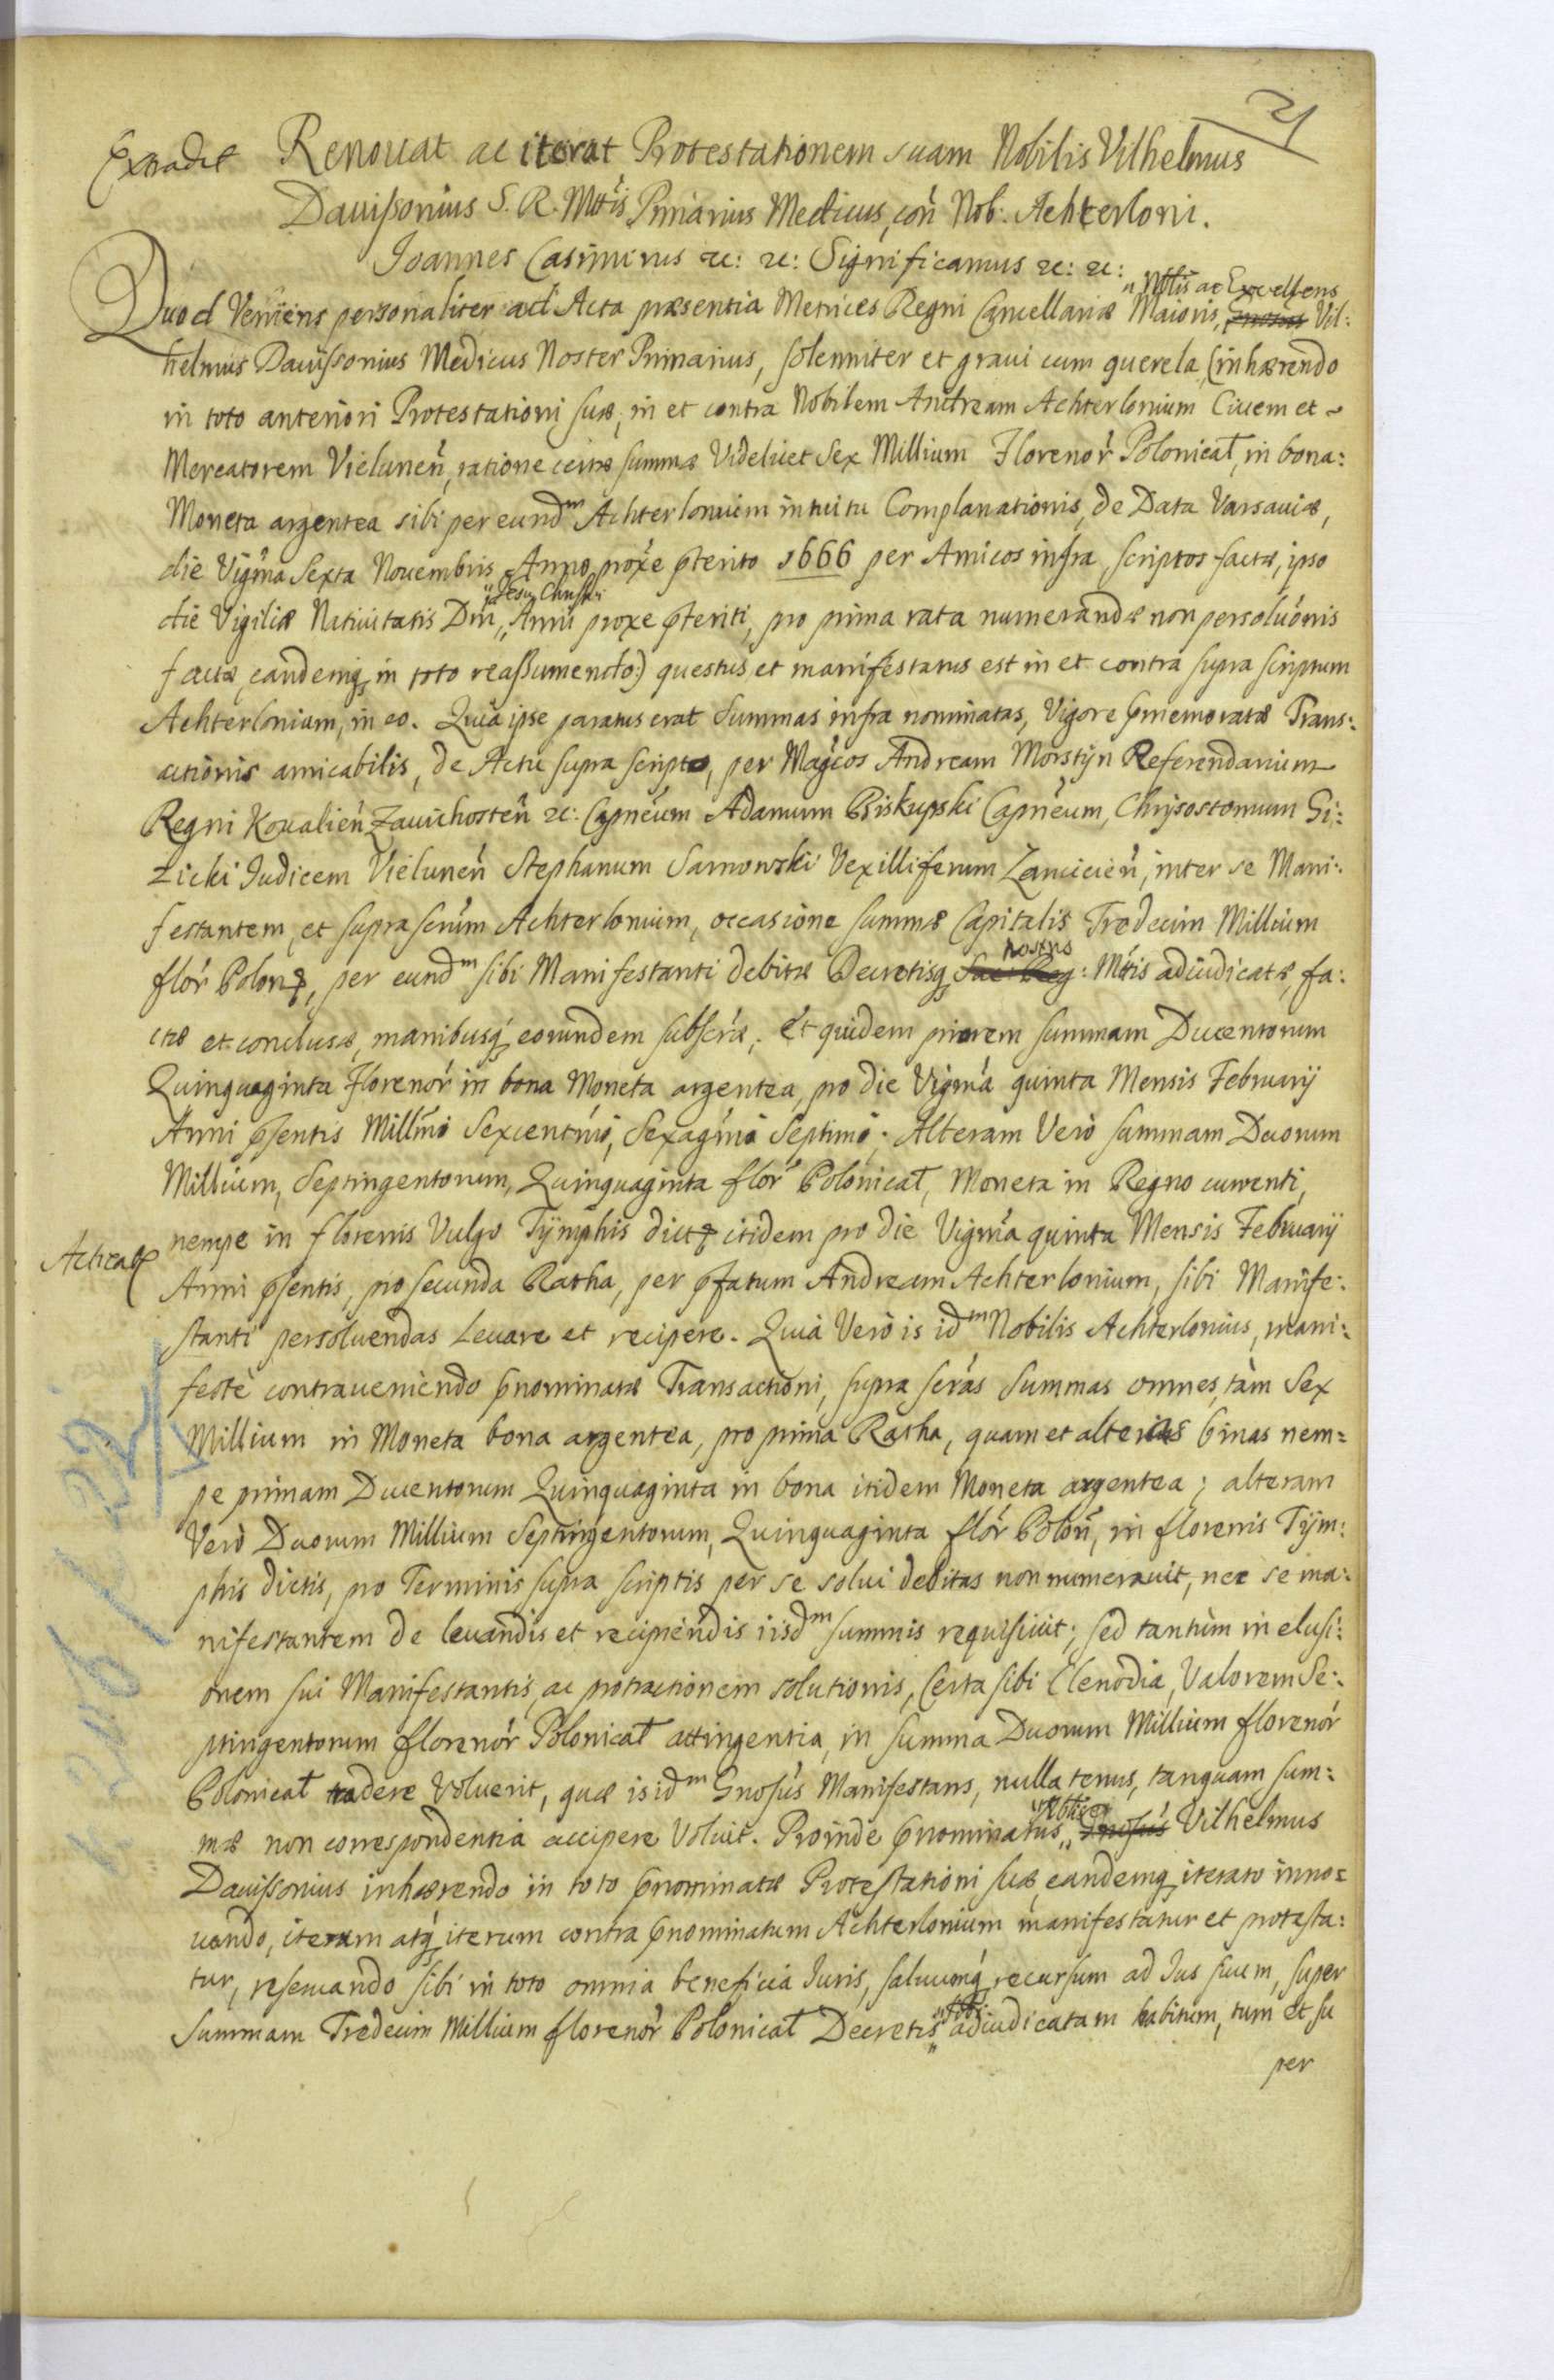 21
Extradit Renouat ac iterat Protestationem suam Nobilis Vilhelmus
Dauissonius S. R. Mttis Primarius Medicus, con̄ Nob: Achterloni.
Joannes Casimirus &c: &c: Significamus &c: &c:
„ Nblis ac Excellens
Quod Veniens personaliter ad Acta præsentia Metrices Regni Cancellariæ Maioris, Vil:
helmus Dauissonius Medicus Noster Primarius, solenniter et graui cum querela, (inhærendo
in toto anteriori Protestationi suæ, in et contra Nobilem Andream Achterlonium Ciuem et ~
Mercatorem Vielunen̄, ratione certæ summæ Videlicet Sex Millium Florenor̄ Polonical, in bona:
Moneta argentea sibi per eundm Achterlonium intuitu Complanationis, de Data Varsauiæ,
die Vigīna Sexta Nouembris Anno prox̄e p̄terito 1666 per Amicos infra scriptos factæ, ipso
„Jesu Christi
die Vigiliæ Natiuitatis Dn̄i „ Anni proxe p̄teriti, pro prima rata numerandæ non persolūonis
factæ, eandemq̨ in toto reassumendo:) questus et manifestatus est in et contra supra scriptum
Achterlonium, in eo. Quia ipse paratus erat Summas infra nominatas, Vigore p̄memoratæ Trans:
actionis amicabilis, de Actu supra scripto, per Mag̃cos Andream Morstÿn Referendarium
Regni Koualien̄ Zauichosten̄ &c: Capnēum Adamum Biskupski Capnēum, Chrÿsostomum Gi:
zicki Judicem Vielunen̄ Stephanum Sarnowski Vexilliferum Lancicien̄, inter se Mani:
festantem, et supra scrūm Achterlonium, occasione summæ Capitalis Tredecim Millium
nostris
flor̄ Polon̄, per eundm sibi Manifestanti debitæ Decretisq̨ Sac: Reg: Mttis adiudicatæ, fa:
ctæ et conclusæ, manibusq̨ eorundem subscr̄æ; Et quidem priorem summam Ducentorum
Quinquaginta Florenor̄ in bona Moneta argentea, pro die Vigm̄a quinta Mensis Februarÿ
Anni p̄sentis Millm̄o Sexcentm̄o, Sexagm̄o Septimo; Alteram Verò summam Duorum
Millium, Septingentorum, Quinquaginta flor̄ Polonical, Moneta in Regno currenti,
Acticat nempe in florenis Vulgo Tÿmphis dict itidem pro die Vigm̄a quinta Mensis Februarÿ
Anni p̄sentis, pro secunda Ratha, per p̄fatum Andream Achterlonium, sibi Manife:
stanti persoluendas Leuare et recipere. Quia Verò is idm Nobilis Achterlonius, mani:
festè contraueniendo p̄nominatæ Transactioni, supra scrās Summas omnes, tàm Sex
Millium in Moneta bona argentea, pro prima Ratha, quam et alterias binas nem=
pe primam Ducentorum Quinquaginta in bona itidem Moneta argentea; alteram
Verò Duorum Millium Septingentorum, Quinquaginta flor̄ Polon̄, in florenis Tÿm:
phis dictis, pro Terminis supra scriptis per se solui debitas non numerauit, nec se ma:
nifestantem de leuandis et recipiendis iisdm summis requisiuit; sed tantùm in elusi:
onem sui Manifestantis, ac protractionem solutionis, Certa sibi Clenodia, Valorem Se:
ptingentorum florenor̄ Polonical attingentia, in summa Duorum Millium florenor̄
Polonical tradere Voluerit, quæ is idm Gnosūs Manifestans, nulla tenus, tanquam sum:
mæ non correspondentia accipere Voluit. Proinde p̄nominatus „ Gnosūs Vilhelmus
Dauissonius inhærendo in toto p̄nominatæ Protestationi suæ, eandemq̨ iterato inno=
uando, iterum atq̨ iterum contra p̄nominatum Achterlonium manifestatur et protesta:
tur, reseruando sibi in toto omnia beneficia Juris, saluumq̨ recursum ad Jus suum, super
„ sibi
Summam Tredecim Millium florenor̄ Polonical Decretis „ adiudicatam habitum, tum et su
per